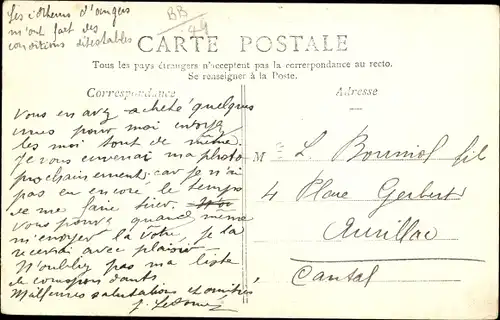 m'ont fait des
conditions détestables
BB
49
CARTE POSTALE
Tous les pays étrangers n'acceptent pas la correspondance au recto.
Se renseigner à la Poste.
Correspondance
Adresse
Vous en avez acheté quelques
unes pour moi envoyez
les moi tout de même.
Je vous enverrai ma photo
prochainement; car je n'ai
pas eu encore le temps
de me faire tirer.
Vous pouvez quand même
m'envoyer la vôtre, je la
recevrai avec plaisir
N'oubliez pas ma liste
de correspondants
Meilleures salutations et amitiés
M L Bourniol fils
4 Place Gerbert
Aurillac
Cantal